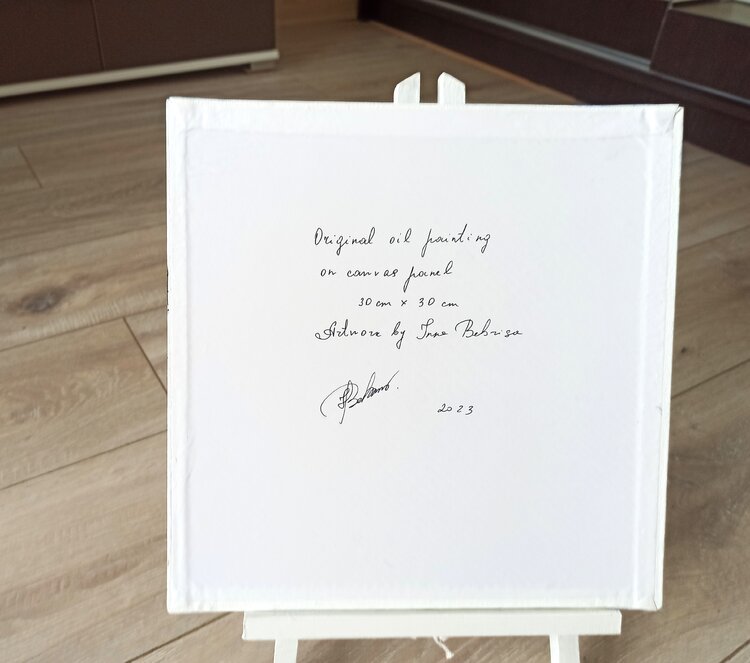 Original oil painting
on canvas panel
30 cm x 30 cm
Artwork by Inna Bebrisa
2023